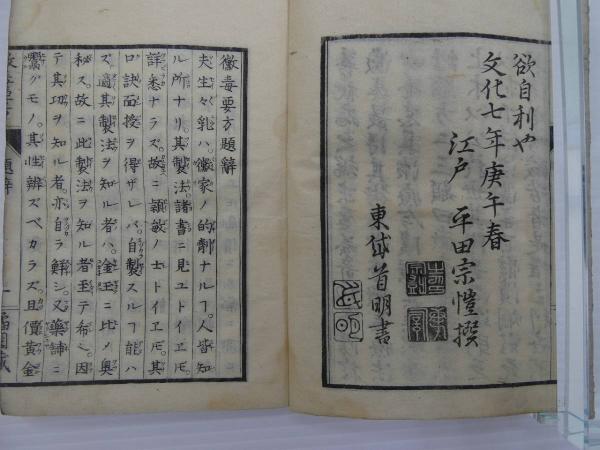 欲自利や
文化七年庚午春
江戸 平田宗愷撰
東岱首明書
黴毒要方題辭
夫生々乳ハ。黴家ノ的劑ナルヿ。人皆知
ル所ナリ。其製法諸書ニ見ユトイヱ𪜈。
詳悉ナラズ。故ニ穎敏ノ士トイヱ𪜈。其
口訣面授ヲ得ザレバ自製スルヿ能ハ
ズ。適其製法ヲ知ル者ハ。金玉ニ比ノ奥
秘ス。故ニ此製法ヲ知ル者至テ希ニ。因
テ其功ヲ知ル者。亦自ラ鮮シ。又藥鋪ニ
鬻グモノ。其性辨ズベカラズ。且價黄金